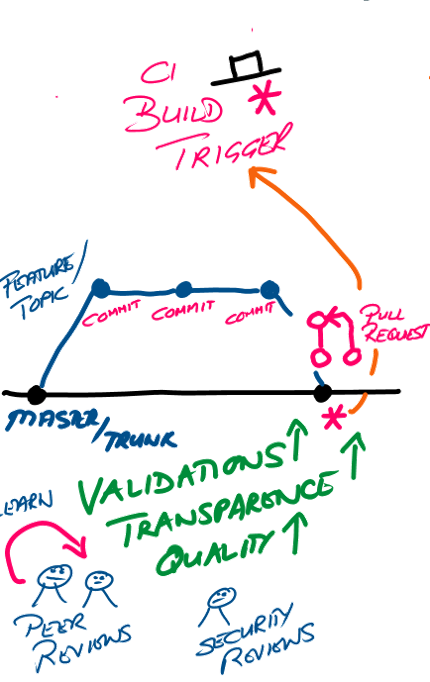 CI
BUILD
TRIGGER
FEATURE/
TOPIC
COMMIT
COMMIT
COMMIT
PULL
REQUEST
MASTER/
TRUNK
VALIDATIONS
TRANSPARENCE
QUALITY
LEARN
PEER
REVIEWS
SECURITY
REVIEWS